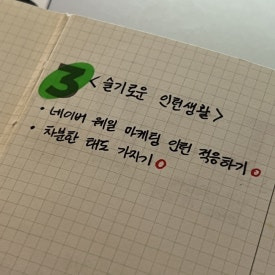 3 <슬기로운 인턴생활>
• 네이버 웨일 마케팅 인턴 적응하기 O
• 차분한 태도 가지기 O